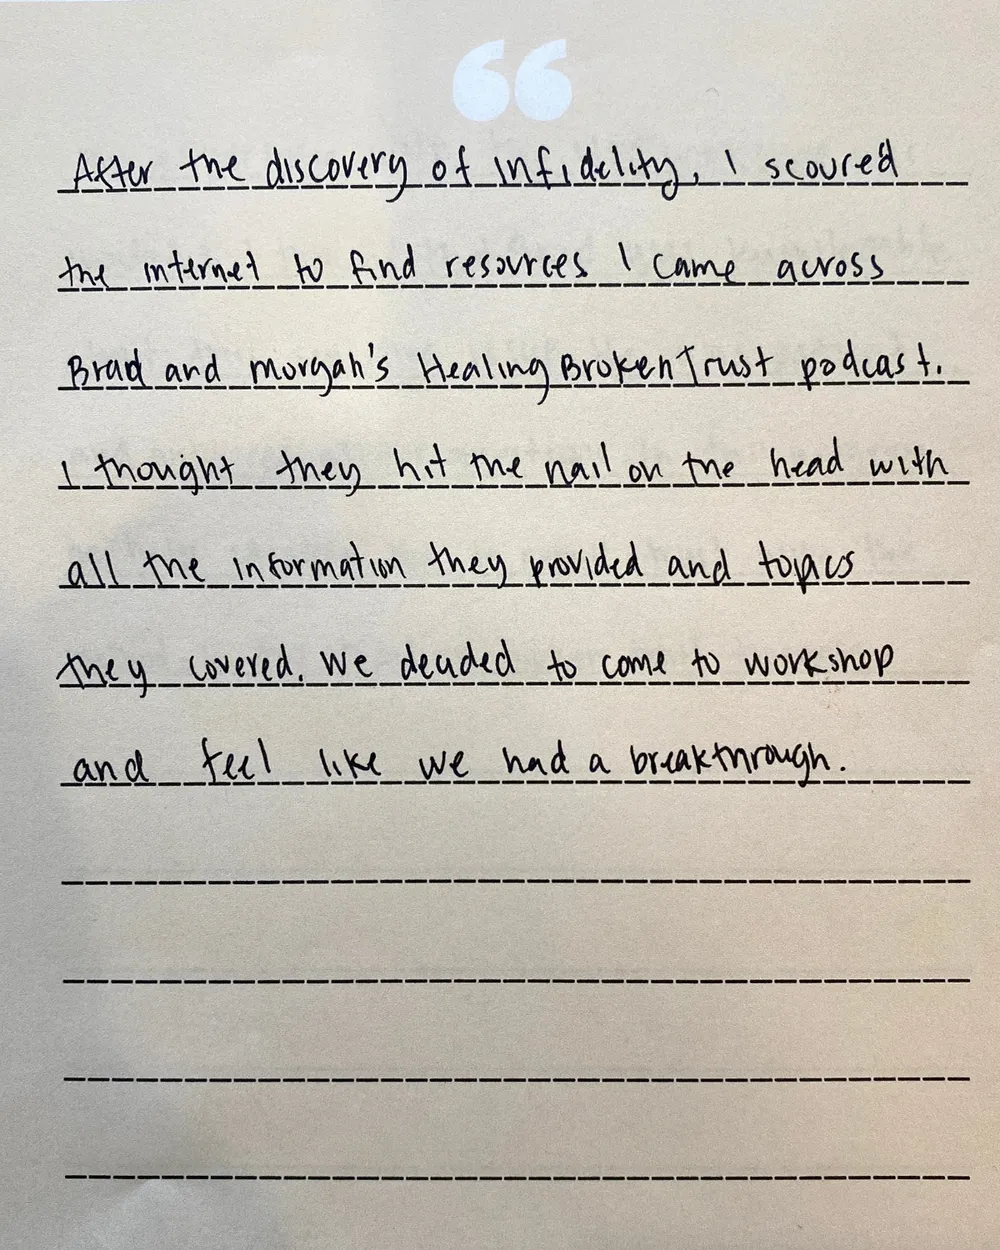 ❝
After the discovery of infidelity, I scoured
the internet to find resources I came across
Brad and morgan's Healing Broken Trust podcast.
I thought they hit the nail on the head with
all the information they provided and topics
they covered. We decided to come to workshop
and feel like we had a breakthrough.